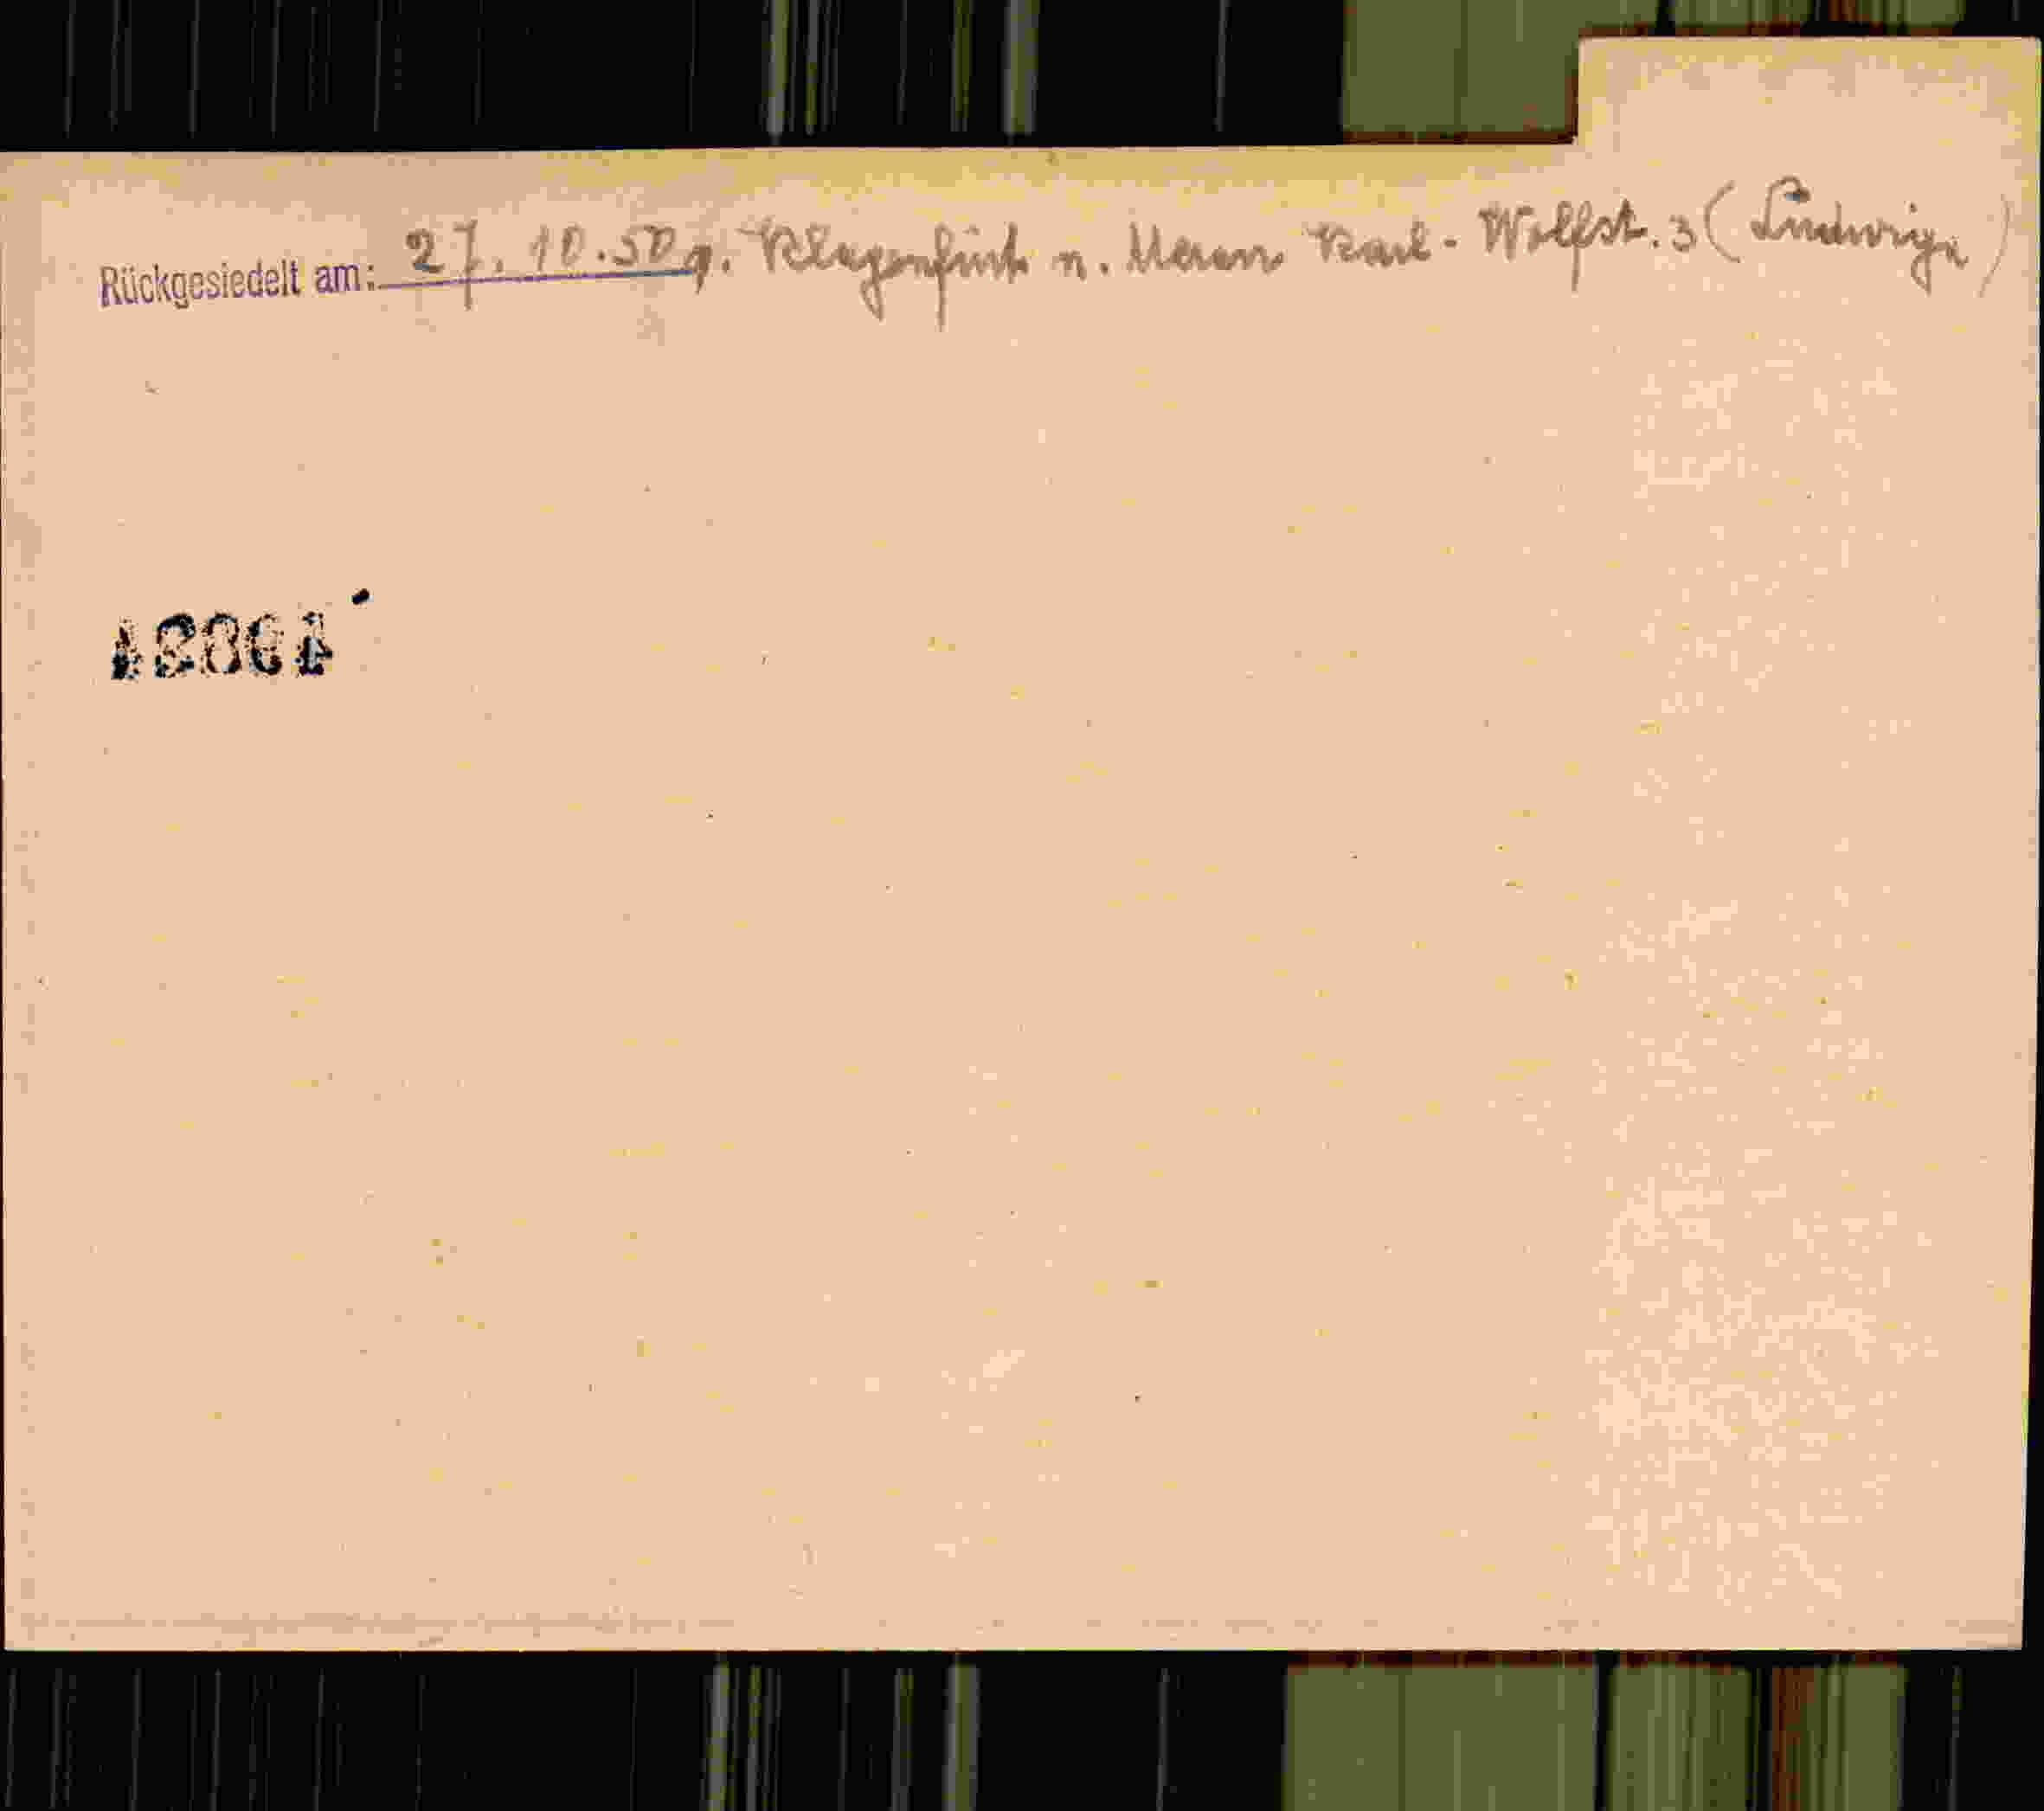 Rückgesiedelt am: 27. 10. 50 v. Klagenfurt n. Meran Karl-Wolfst. 3 (Ludwiga)